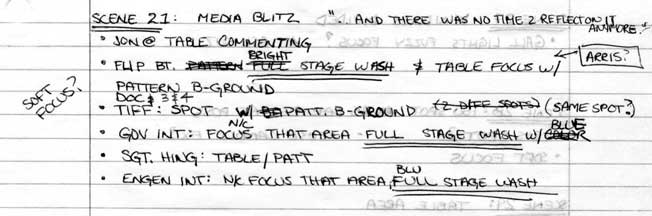 SCENE 21: MEDIA BLITZ "AND THERE WAS NO TIME 2 REFLECT ON IT ANYMORE."
• JON @ TABLE COMMENTING
• FLIP BT. PATTERN BRIGHT FULL STAGE WASH & TABLE FOCUS W/ ARRIS?
PATTERN B-GROUND
SOFT FOCUS?
DOC$ 3 & 4
• TIFF: SPOT W/ PATT B-GROUND (2 DIFF SPOTS) (SAME SPOT?)
N/C BLUE
• GOV INT: FOCUS THAT AREA FULL STAGE WASH W/ COLOR
• SGT. HING: TABLE/PATT
BLU
• ENGEN INT: N/C FOCUS THAT AREA, FULL STAGE WASH